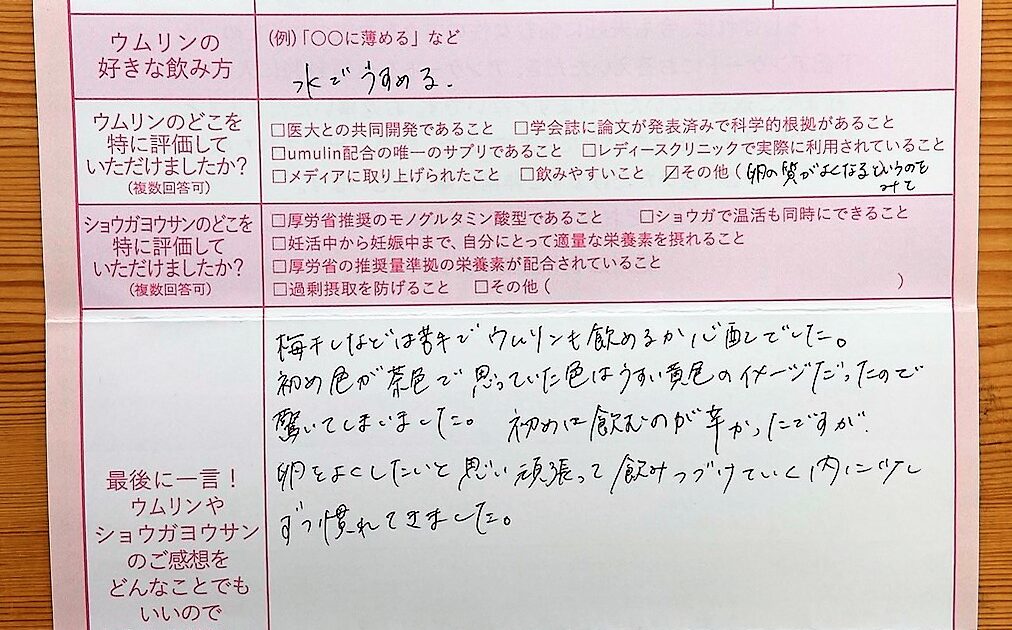 ウムリンの
好きな飲み方
(例)「〇〇に薄める」など
水でうすめる.
ウムリンのどこを
特に評価して
いただけましたか?
(複数回答可)
□医大との共同開発であること □学会誌に論文が発表済みで科学的根拠があること
□umulin配合の唯一のサプリであること □レディースクリニックで実際に利用されていること
□メディアに取り上げられたこと □飲みやすいこと ☑その他(卵の質がよくなるというのを
みて
ショウガヨウサンのどこを
特に評価して
いただけましたか?
(複数回答可)
□厚労省推奨のモノグルタミン酸型であること □ショウガで温活も同時にできること
□妊活中から妊娠中まで、自分にとって適量な栄養素を摂れること
□厚労省の推奨量準拠の栄養素が配合されていること
□過剰摂取を防げること □その他( )
最後に一言!
ウムリンや
ショウガヨウサン
のご感想を
どんなことでも
いいので
梅干しなどは苦手でウムリンも飲めるか心配でした。
初め色が茶色で思っていた色はうすい黄色のイメージだったので
驚いてしまいました。 初めは飲むのが辛かったですが、
卵をよくしたいと思い頑張って飲みつづけていく内に少し
ずつ慣れてきました。